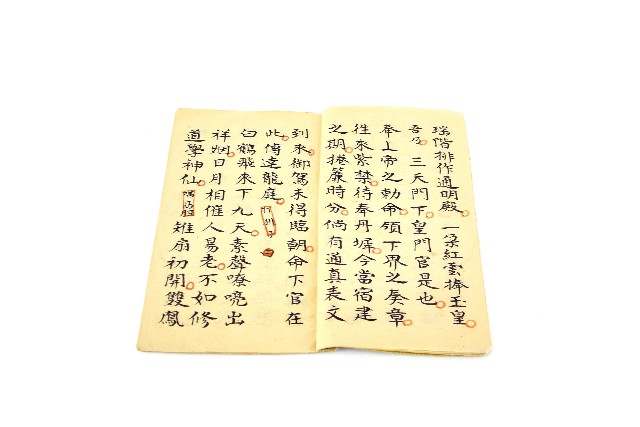 瑤階排作通明殿一朶紅雲捧玉皇
吾乃三天門下皇門官是也
奉上帝之勅命領下界之奏章
往來紫禁待奉丹墀今當宿建
之期捲簾時分倘有通真表文
到來御駕未得臨朝命下官在
此傳達龍庭
白鶴飛來下九天素聲嘹喨出
祥烟日月相催人易老不如修
道學神仙 雉扇初開雙鳳